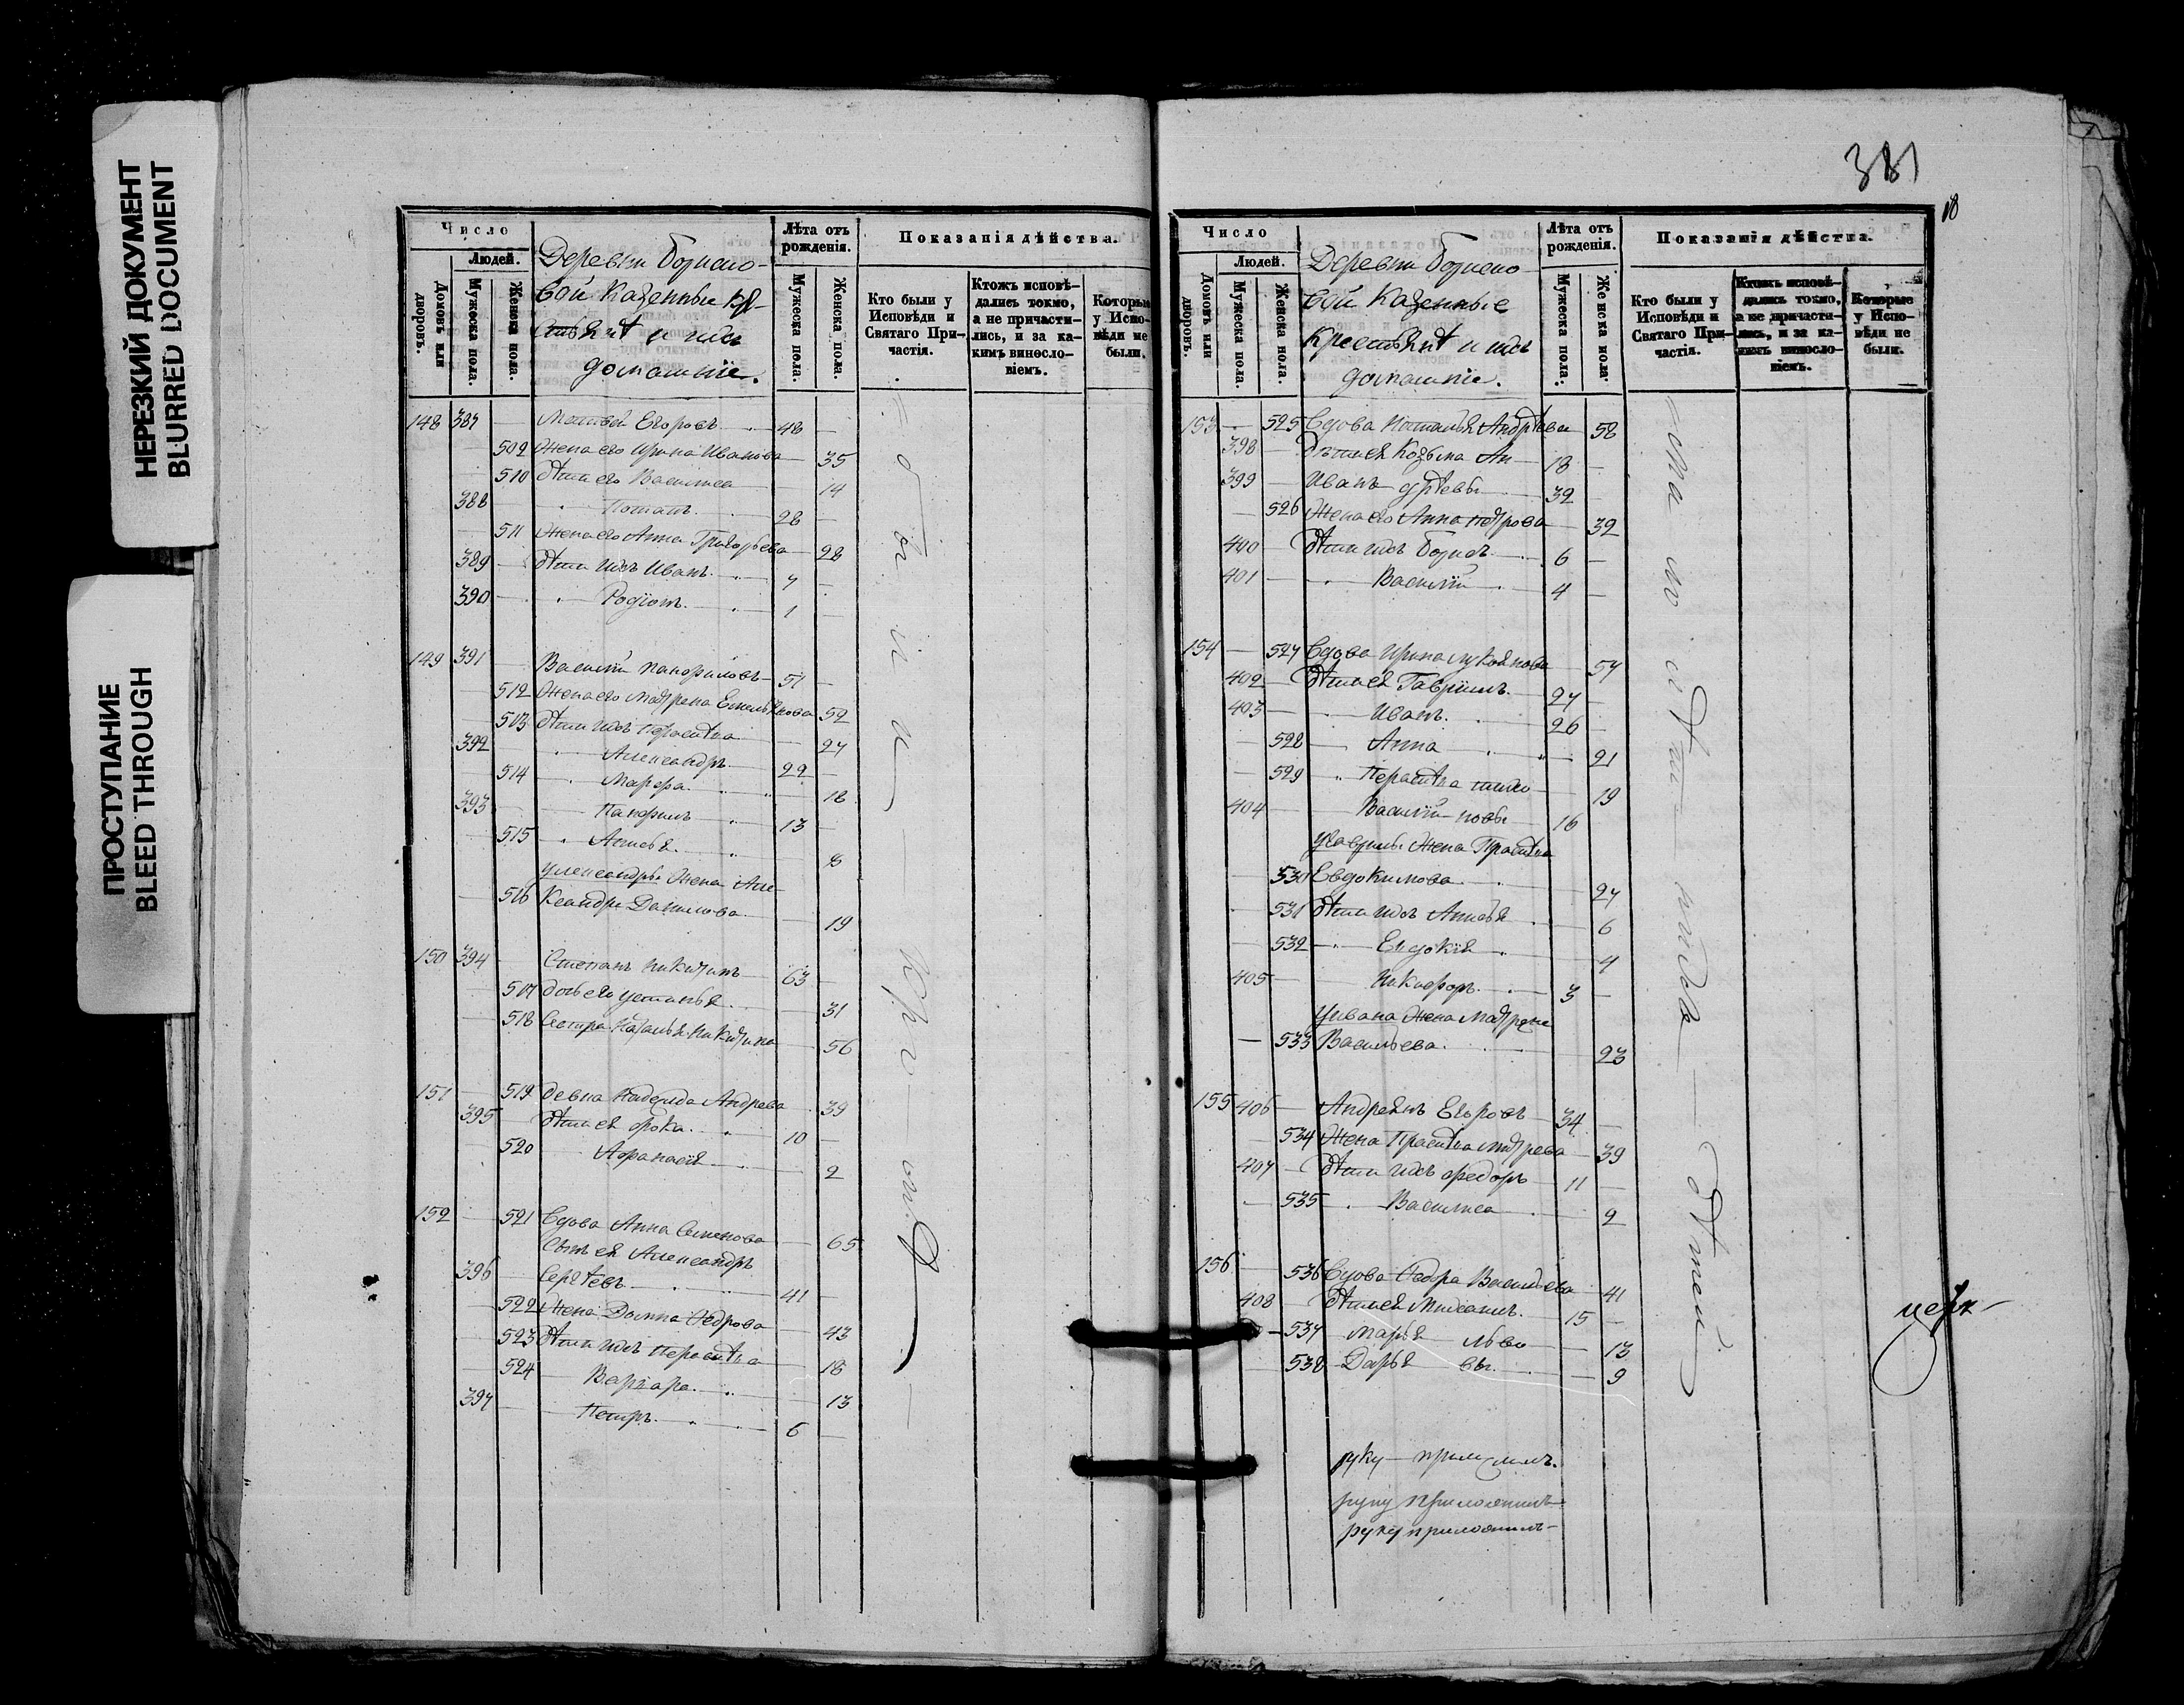 НЕРЕЗКИЙ ДОКУМЕНТ
BLURRED DOCUMENT
ПРОСТУПАНИЕ
BLEED THROUGH
Число
Людей.
Домовъ или дворовъ.
Мужеска пола.
Женска пола.
Деревни Борисо-
вой Казенные Кре-
стьянѣ и ихъ
домашніе.
Лѣта отъ рожденія.
Мужеска пола.
Женска пола.
Показанія дѣйства.
Кто были у Исповѣди и Святаго При-частія.
Ктожъ исповѣ-дались токмо, а не причасти-лись, и за ка-кимъ винословіемъ.
Которые у Испо-вѣди не были.
148 387 Матвей Егоровъ 48
509 Жена его Ирина Иванова 35
510 дѣти его Василиса 14
388 Потапъ 28
511 Жена его Анна Григорьева 28
389 дѣти ихъ Иванъ 7
390 Родіонъ 1
149 391 Василій Панфиловъ 51
512 Жена его Матрена Емельянова 52
513 дѣти ихъ Параскѣва 27
392 Александръ 22
514 Марфа 18
393 Панфилъ 13
515 Анисья 8
У Александры Жена Але-
516 ксандра Данилова 19
150 394 Степанъ Никитинъ 63
517 дочь его Устинья 31
518 Сестра Наталья Никитина 56
151 519 девка Надежда Андрева 39
395 дѣти ея Фока 10
520 Афанасія 2
152 521 Вдова Анна Семенова 65
Сынъ ея Александръ
396 Сергѣевъ 41
522 Жена Домна Федрова 43
523 дѣти ихъ Параскѣва 18
524 Варвара 13
397 Петръ 6
381
18
Число
Людей.
Домовъ или дворовъ.
Мужеска пола.
Женска пола.
Деревни Борисо-
вой Казенные
Крестьянѣ и ихъ
домашніе.
Лѣта отъ рожденія.
Мужеска пола.
Женска пола.
Показанія дѣйства.
Кто были у Исповѣди и Святаго При-частія.
Ктожъ исповѣ-дались токмо, а не причасти-лись, и за ка-кимъ винословіемъ.
Которые у Испо-вѣди не были.
153 525 Вдова Наталья Андрѣева 58
398 дѣти ея Козьма Ан- 18
399 Иванъ дрѣевы 32
526 Жена его Анна Петрова 32
400 дѣти ихъ Борисъ 6
401 Василій 4
154 527 Вдова Ирина Лукоянова 57
402 дѣти ея Гаврiилъ 27
403 Иванъ 26
528 Анна 21
529 Параскѣва 19
404 Василій новы 16
У Гаврилы Жена Праскѣва
530 Евдокимова 27
531 дѣти ихъ Анисья 6
532 Евдокія 4
405 Никифоръ 3
У Ивана Жена Матрена
533 Васильева 23
155 406 Андреянъ Егоровъ 34
534 Жена Праскѣва 39
407 дѣти ихъ Федоръ 11
535 Василиса 2
156 536 Вдова Федора Васильева 41
408 дѣти ея Михаилъ 15
537 Марья льво 13
538 Дарья вы 9
руку приложилъ
руку приложилъ
руку приложилъ